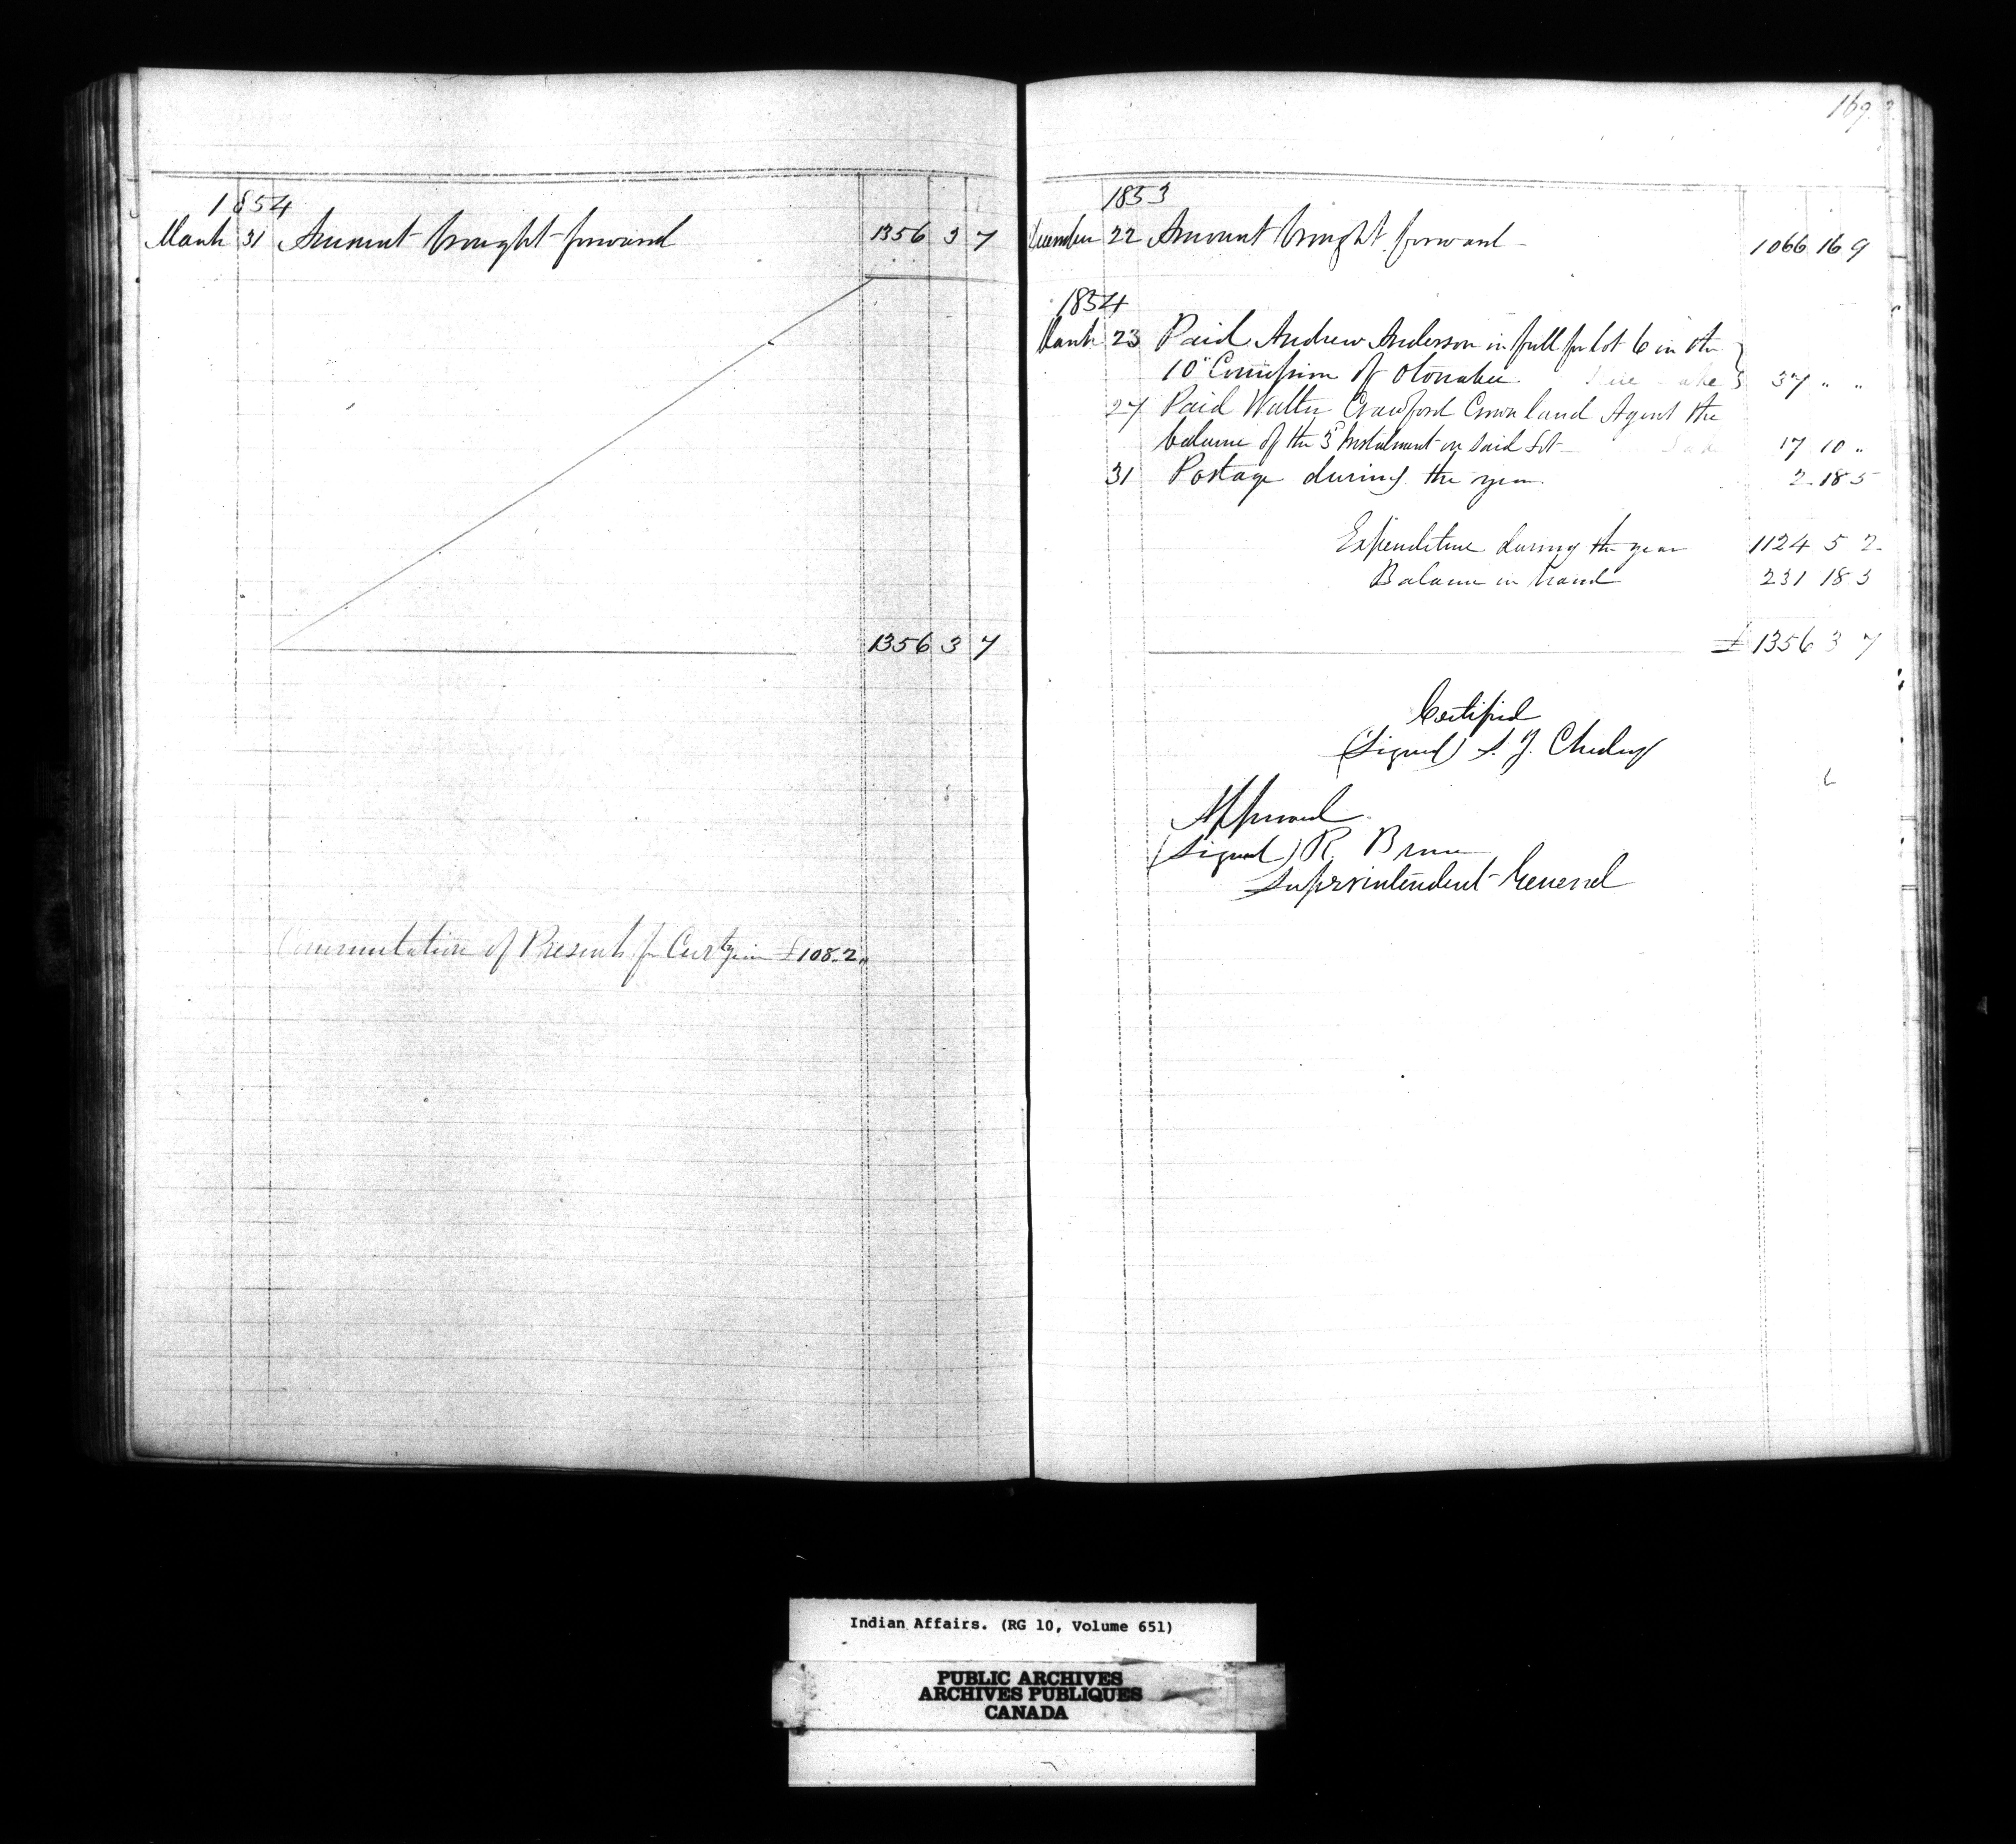 1854
March 31 Amount brought forward 1356 3 7
1356 3 7
Commutation of Presents for Curzin £108.2„
169
1853
December 22 Amount brought forward 1066 16 9
1854
March 23 Paid Andrew Anderson in full for Lot 6 in the
10" Concession of Otonabee Rice Lake 37 " "
27 Paid Walter Crawford Crown land Agent the
balance of the 3d Instalment on said Lot 17 10 "
31 Postage during the year 2 18 5
Expenditure during the year 1124 5 2
Balance in hand 231 18 5
£ 1356 3 7
Certified
(Signed) S. Y. Chesley
Approved
(Signed) R. Bruce
Superintendent General
Indian Affairs. (RG 10, Volume 651)
PUBLIC ARCHIVES
ARCHIVES PUBLIQUES
CANADA